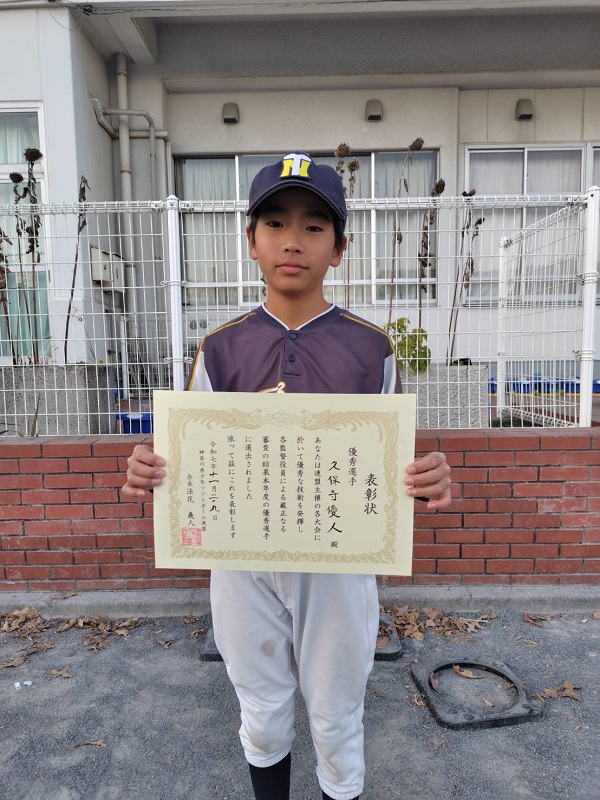 TN
表彰状
優秀選手
久保寺優人 殿
あなたは連盟主催の各大会に
於いて優秀な技術を発揮し
各監督役員による厳正なる
審査の結果本年度の優秀選手
に選出されました
依って茲にこれを表彰します
令和七年十一月二九日
神奈川県少年ソフトボール連盟
会長 法花 義人